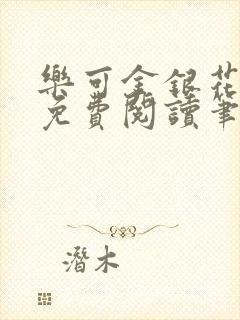 樂可金銀花
免費閱讀筆
潛木